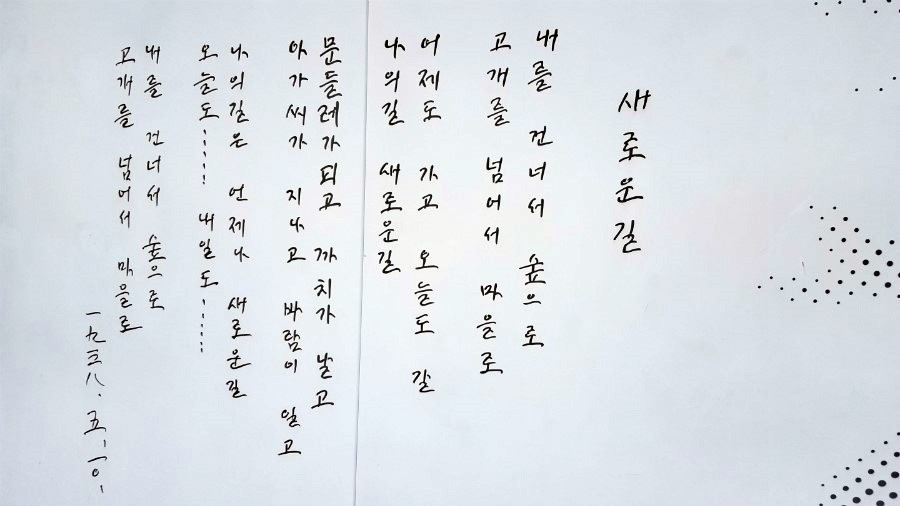 새로운길
내를 건너서 숲으로
고개를 넘어서 마을로
어제도 가고 오늘도 갈
나의길 새로운길
문들레가피고 까치가 날고
아가씨가 지나고 바람이 일고
나의길은 언제나 새로운길
오늘도…… 내일도……
내를 건너서 숲으로
고개를 넘어서 마을로
一九三八.五.一〇.